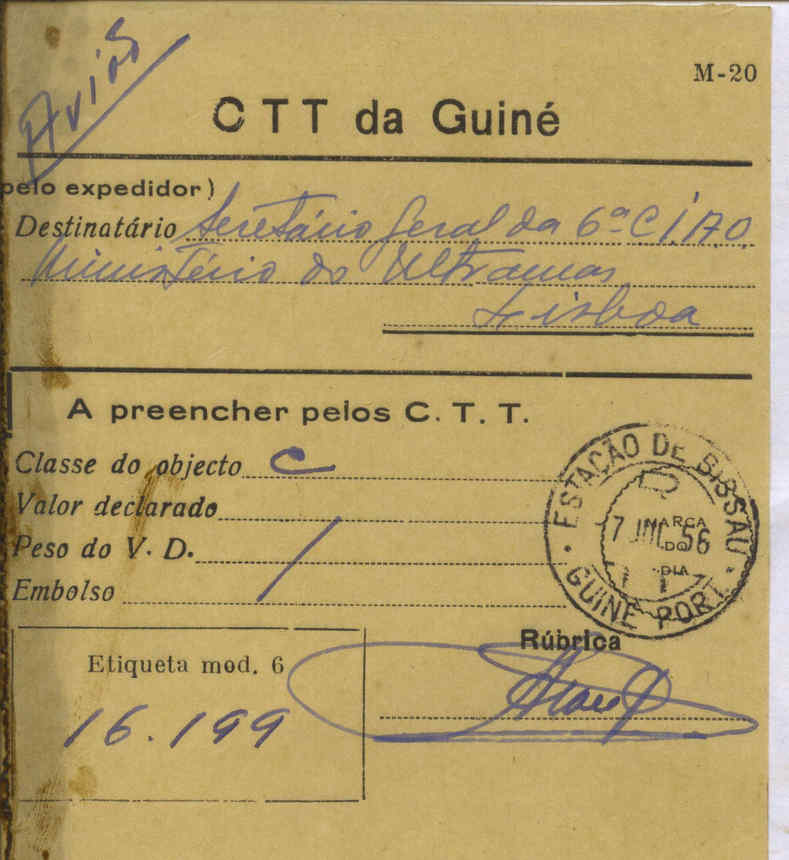 Avião
M-20
CTT da Guiné
pelo expedidor)
Destinatário Secretário Geral da 6ª C.I.A.O.
Ministério do Ultramar
Lisboa
A preencher pelos C. T. T.
Classe do objecto C
Valor declarado
Peso do V. D.
Embolso
ESTAÇÃO DE BISSAU
MARCA
DO
DIA
GUINÉ PORT.
Rúbrica
Etiqueta mod. 6
16.199